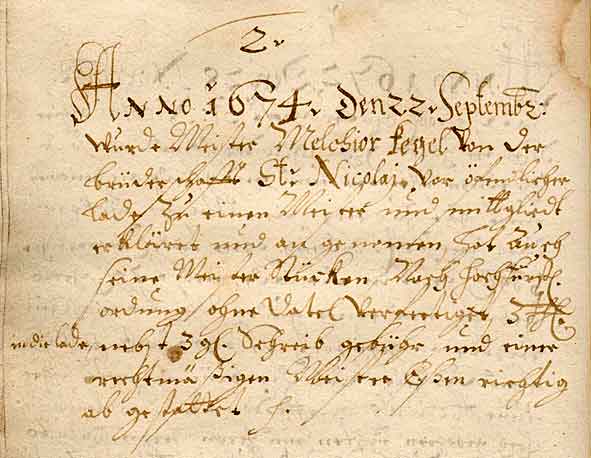 2.
ANNO 1674. Den 22. Septembr:
wurde Meister Melchior von der
brüderschafft St. Nicolaj, vor öffentlicher
lade zu einen Meister und mittgliedt
erkläret und an genomen, hat auch
seine Meister Stücken Nach hochfürstl.
ordnung ohne Datel verfertiget, 3
in die lade, nebst 3 gl. Schreib gebühr und einer
rechtmäßigen Meister Eßen richtig
ab gestattet